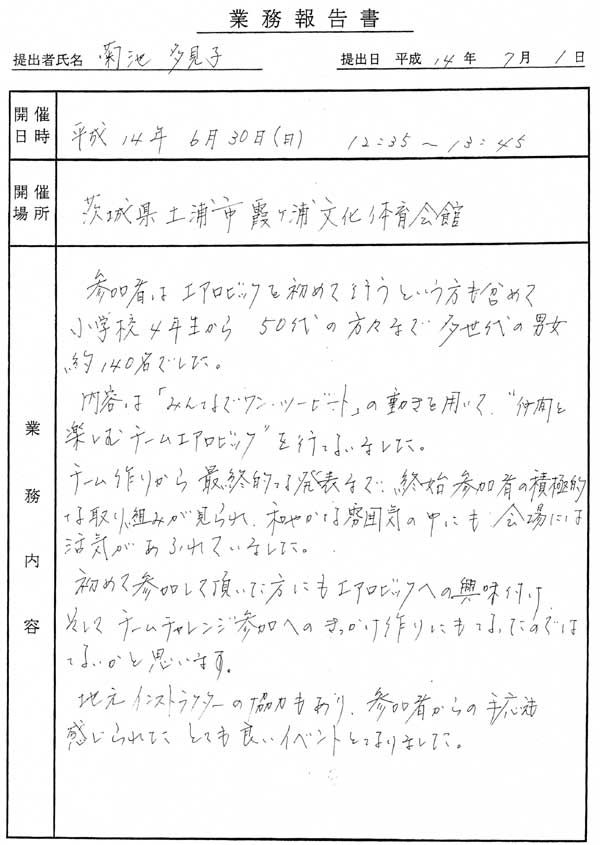 業務報告書
提出者氏名 菊池 多見子 提出日 平成 14年 7月 1日
開催日時 平成 14年 6月30日(日) 12:35～13:45
開催場所 茨城県土浦市霞ヶ浦文化体育会館
業務内容
参加者は エアロビックを初めて行うという方も含めて
小学校4年生から 50代の方々まで 多世代の男女
約140名でした。
内容は「みんなでワン・ツービート」の動きを用いて、"仲間と
楽しむチームエアロビック"を行ないました。
チーム作りから 最終的な発表まで、終始参加者の積極的
な取り組みが見られ、和やかな雰囲気の中にも 会場には
活気があふれていました。
初めて参加して頂いた方にもエアロビックへの興味付け
そして チームチャレンジ参加へのきっかけ作りにもなったのでは
ないかと思います。
地元インストラクターの協力もあり、参加者からの手応えも
感じられた とても良いイベントとなりました。